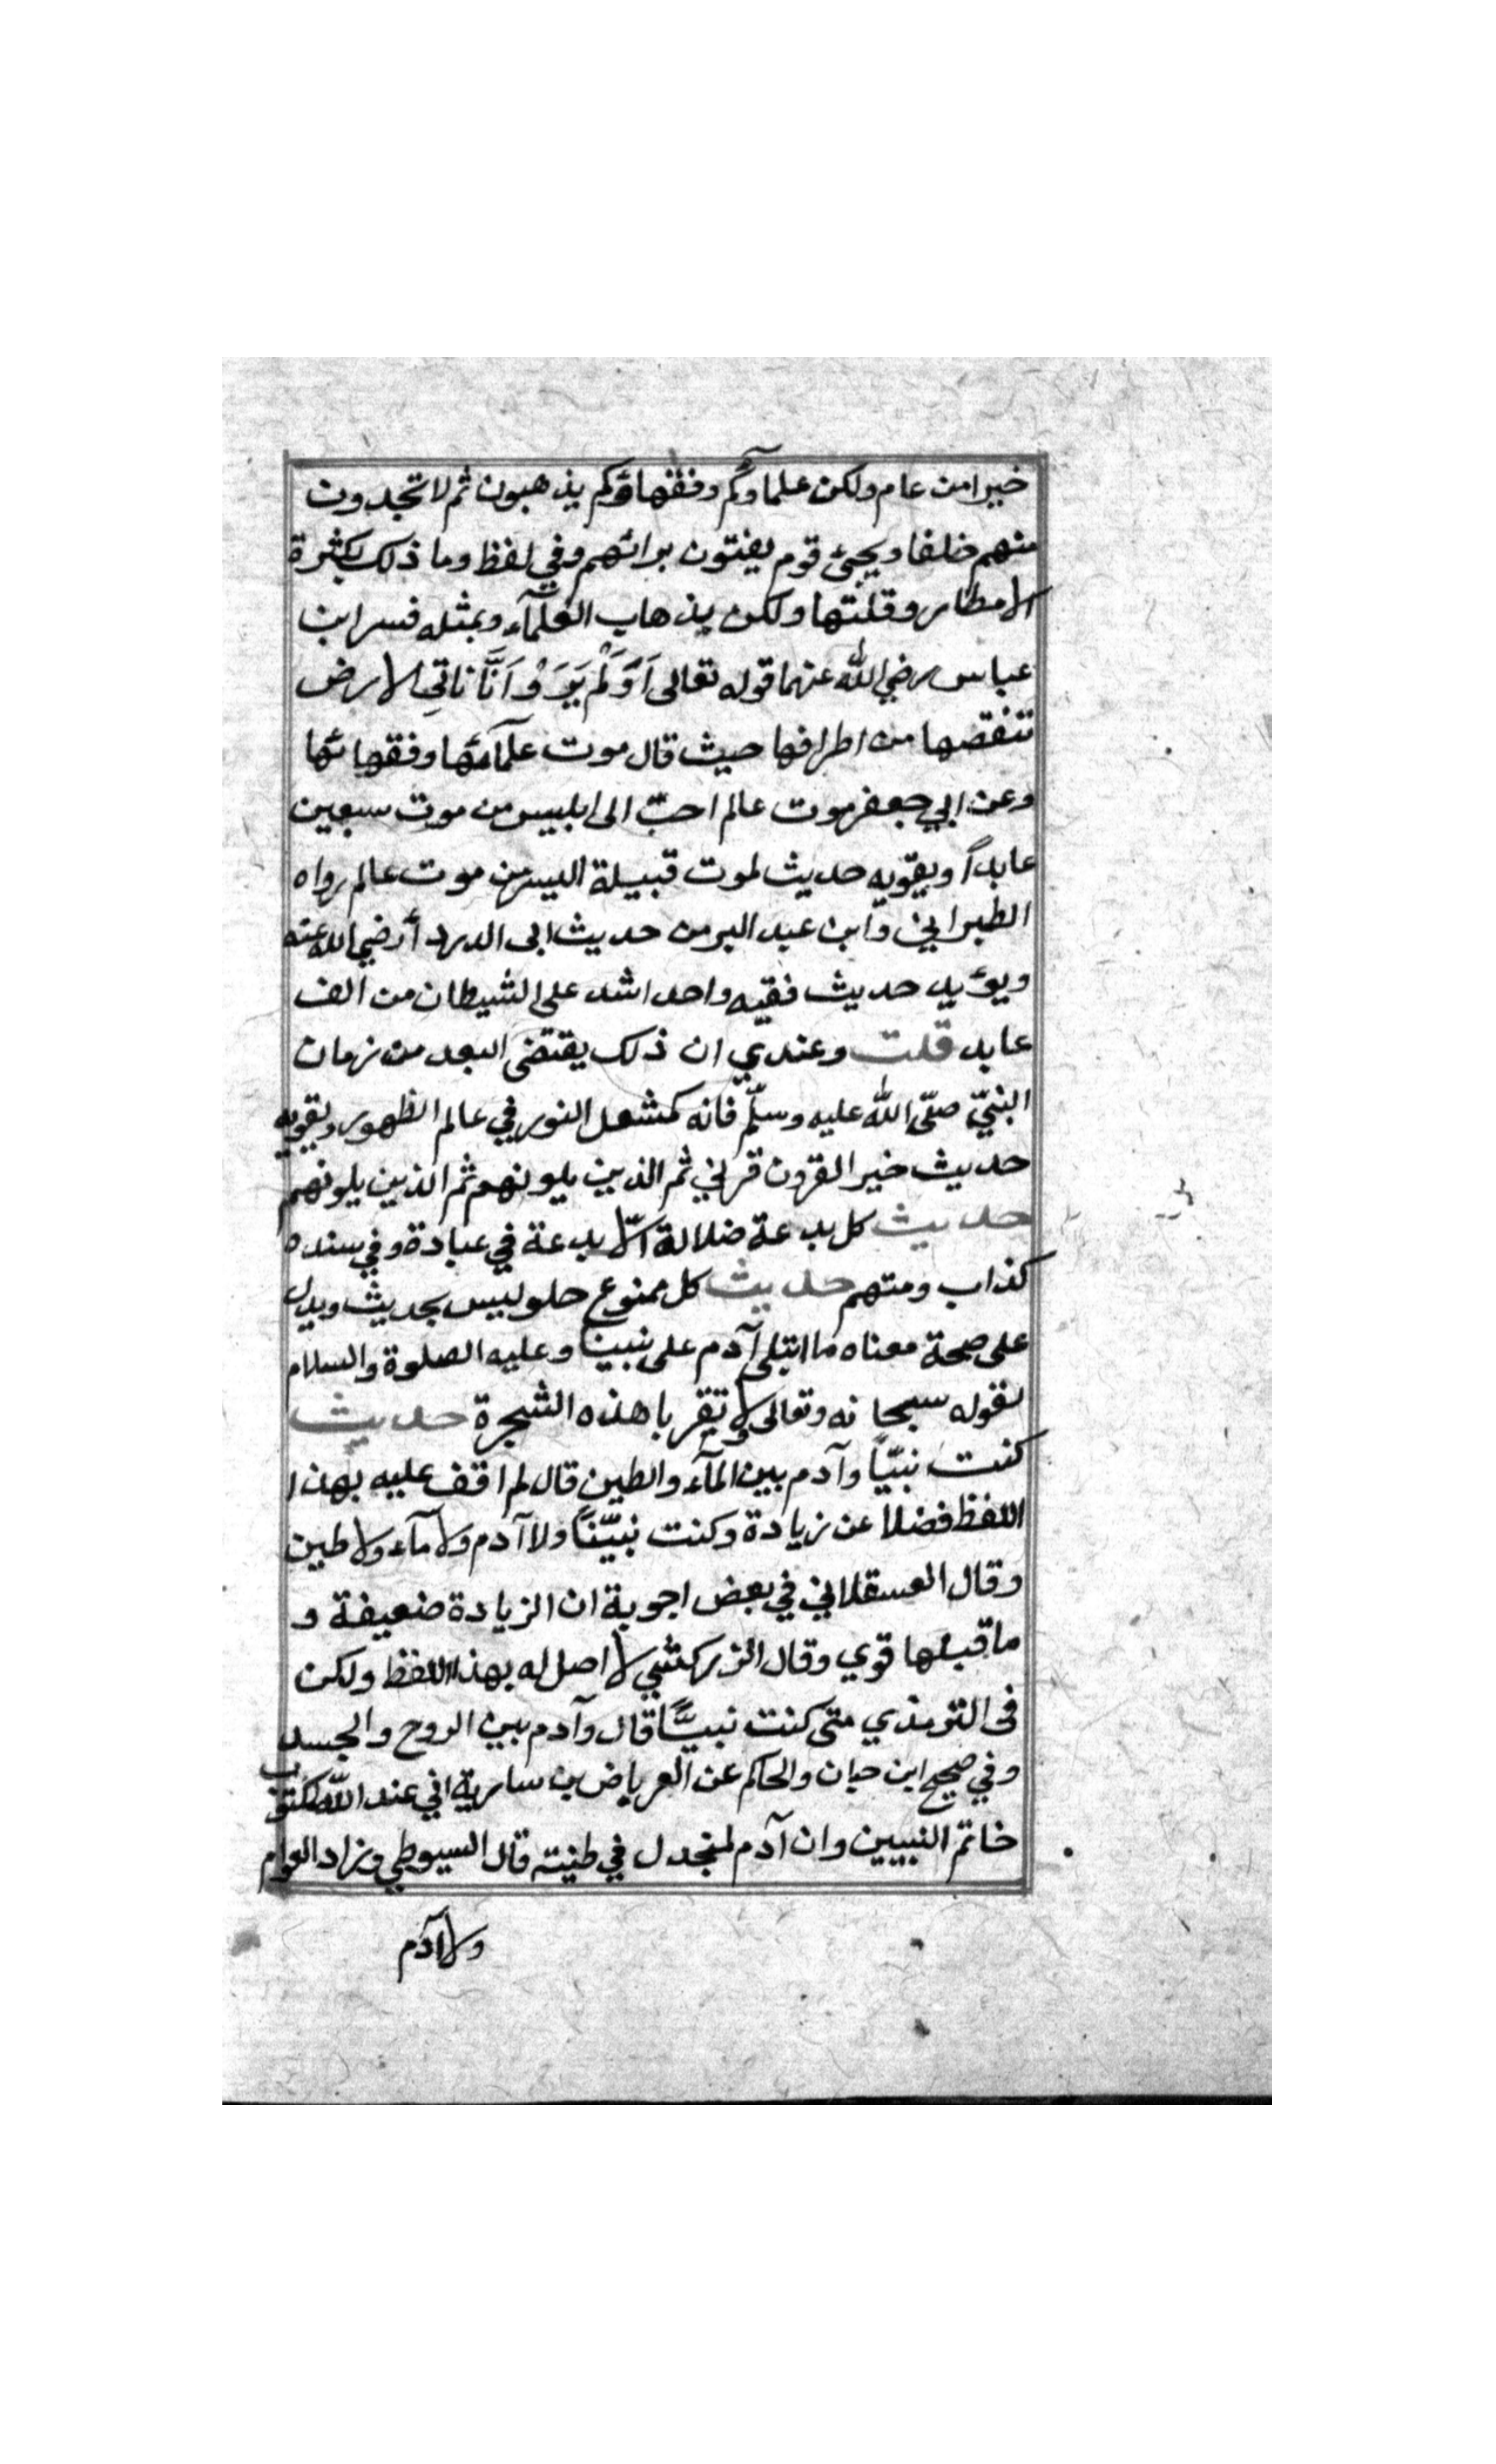 خيرا من عام ولكن علماوكم وفقهاؤكم يذهبون ثم لا تجدون
منهم خلفا ويجئ قوم يفتون برائهم وفي لفظ وما ذلك بكثرة
الامطار وقلتها ولكن يذهاب العلمآء وبمثله فسر ابن
عباس رضي الله عنهما قوله تعالى اَوَلَمْ يَرَوْا اَنَّا ناتي الارض
ننقصها من اطرافها حيث قال موت علمآئها وفقهائها
وعن ابي جعفر موت عالم احبّ الى ابليس من موت سبعين
عابداً ويقويه حديث لموت قبيلة اليسر من موت عالم رواه
الطبراني وابن عبد البر من حديث ابى الدرداء رضي الله عنه
ويؤيد حديث فقيه واحد اشد على الشيطان من الف
عابد قلت وعندي ان ذلك يقتضى البعد من زمان
النبيّ صلّى الله عليه وسلّم فانه كمشعل النور في عالم الظهور ويقويه
حديث خير القرون قرني ثم الذين يلونهم ثم الذين يلونهم
حديث كل بدعة ضلالة الّا بدعة في عبادة وفي سنده
كذاب ومتهم حديث كل ممنوع حلو ليس بحديث ويدل
على صحة معناه ما ابتلى آدم على نبينا وعليه الصلوة والسلام
لقوله سبحانه وتعالى ولا تقربا هذه الشجرة حديث
كنت نبيّاً وآدم بين المآء والطين قال لم اقف عليه بهذا
اللفظ فضلا عن زيادة وكنت نبيّناً ولا آدم ولا مآء ولا طين
وقال العسقلاني في بعض اجوبة ان الزيادة ضعيفة و
ما قبلها قوي وقال الزركشي لا اصل له بهذا اللفظ ولكن
فى الترمذي متى كنت نبيًّا قال وآدم بين الروح والجسد
وفي صحيح ابن حبان والحاكم عن العرباض بن سارية اني عند الله لمكتوب
خاتم النبيين وان آدم لمنجدل في طينته قال السيوطي وزاد العوام
ولا آدم